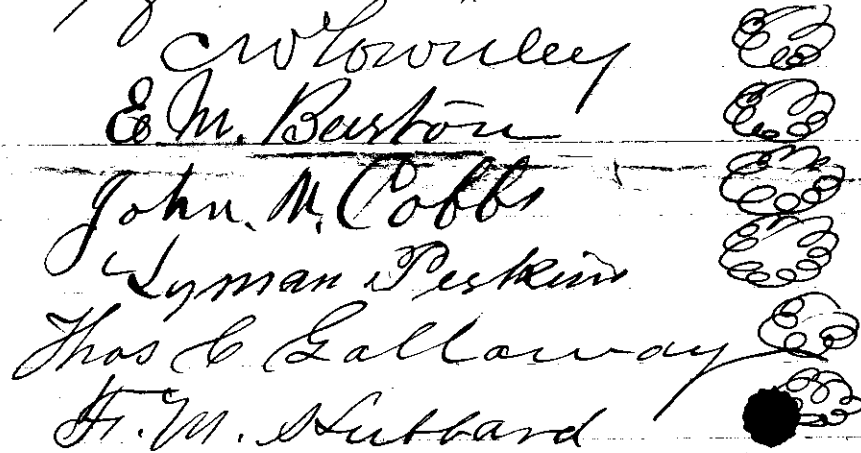 C W Townley
E. M. Barton
John. M. Cobbs
Lyman Perkins
Thos C Gallaway
F. M. Hubbard